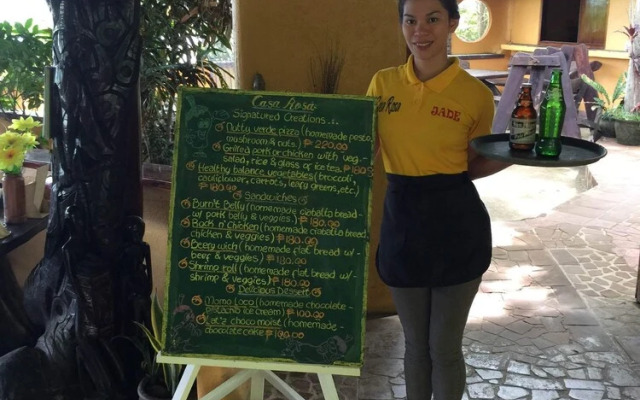 Casa Rosa
Signatured Creations...
Nutty verde pizza (homemade pesto,
mushroom & nuts) ₱ 220.00
Grilled pork or chicken with veg-
salad, rice & glass of ice tea. ₱ 180
Healthy balance vegetables (broccoli,
cauliflower, carrots, leafy greens, etc.)
₱ 180.00
Sandwiches
Burnt Belly (homemade ciabatta bread-
w/ pork belly & veggies.) ₱ 180.00
Rock n' chicken (homemade ciabatta bread,
chicken & veggies) ₱ 180.00
Beefy wich (homemade flat bread w/-
beef & veggies) ₱ 180.00
Shrimp roll (homemade flat bread w/-
shrimp & veggies) ₱ 180.00
Delicious Dessert
Momo Loco (homemade chocolate-
pistachio ice cream) ₱ 100.00
Kat'z choco moist (homemade-
chocolate cake ₱ 100.00
Casa Rosa
JADE